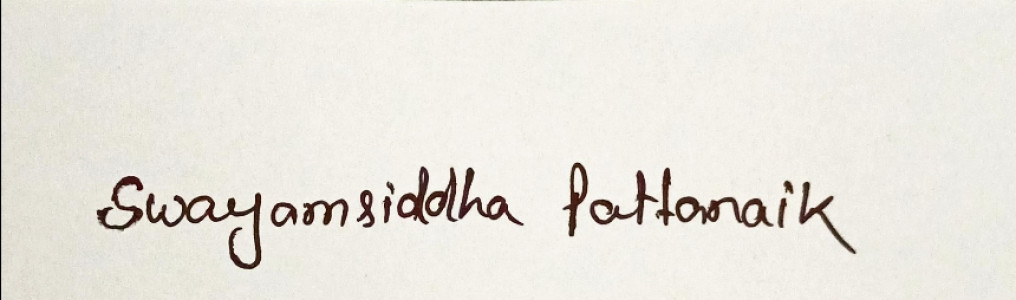 Swayamsiddha Pattanaik